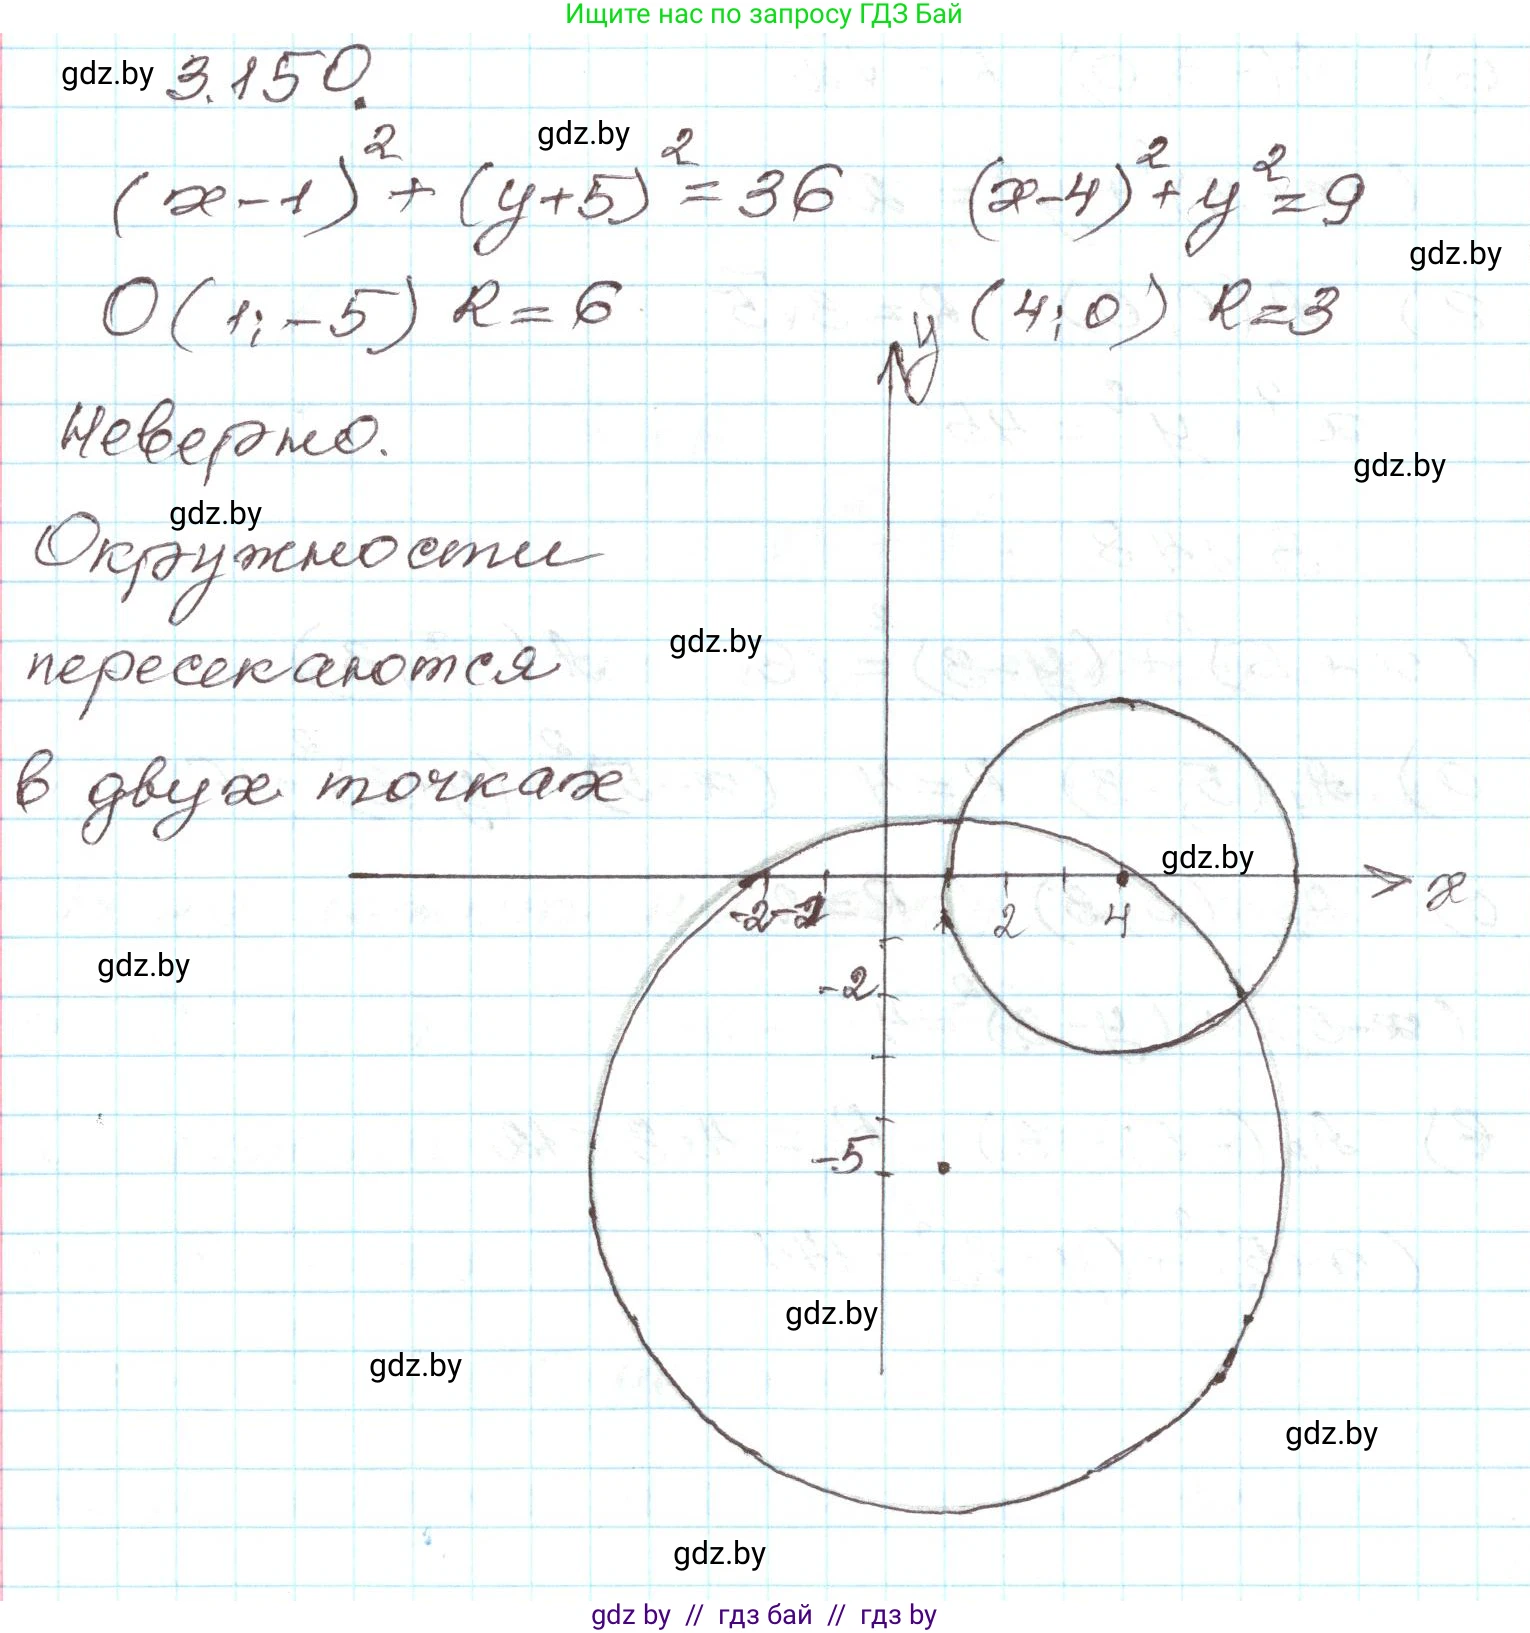 Ищите нас по запросу ГДЗ Бай
gdz.by 3.150.
gdz.by
(x-1)² + (y+5)² = 36 (x-4)² + y² = 9
gdz.by
O(1;-5) R=6 (4;0) R=3
y
Неверно.
gdz.by
gdz.by
Окружности
gdz.by
пересекаются
в двух точках
gdz.by
x
-2 -1 1 2 4
gdz.by
-2
-5
gdz.by
gdz.by
gdz.by
gdz.by
gdz by // гдз бай // гдз by